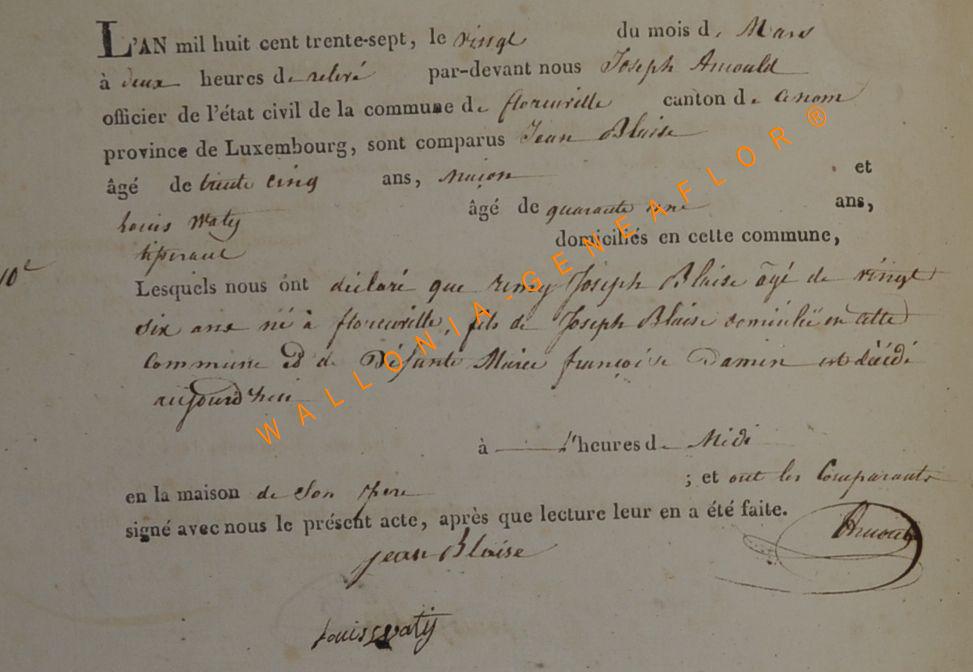 L'AN mil huit cent trente-sept, le vingt du mois de Mars
à deux heures de relevé par-devant nous Joseph Arnould
officier de l'état civil de la commune de florenville canton de
province de Luxembourg, sont comparus Jean Blaise
âgé de trente cinq ans, maçon et
Louis Waty âgé de quarante ans,
domiciliés en cette commune,
10e
Lesquels nous ont déclaré que remy Joseph Blaise âgé de vingt
six ans né à florenville, fils de Joseph Blaise domicilié en cette
commune et de Défunte Marie françoise Damin est décédé
aujourd'hui
à heures de Midi
en la maison de Son père ; et ont les Comparants
signé avec nous le présent acte, après que lecture leur en a été faite.
Arnould
Jean Blaise
Louis Waty
WALLONIA-GENEAFLOR®